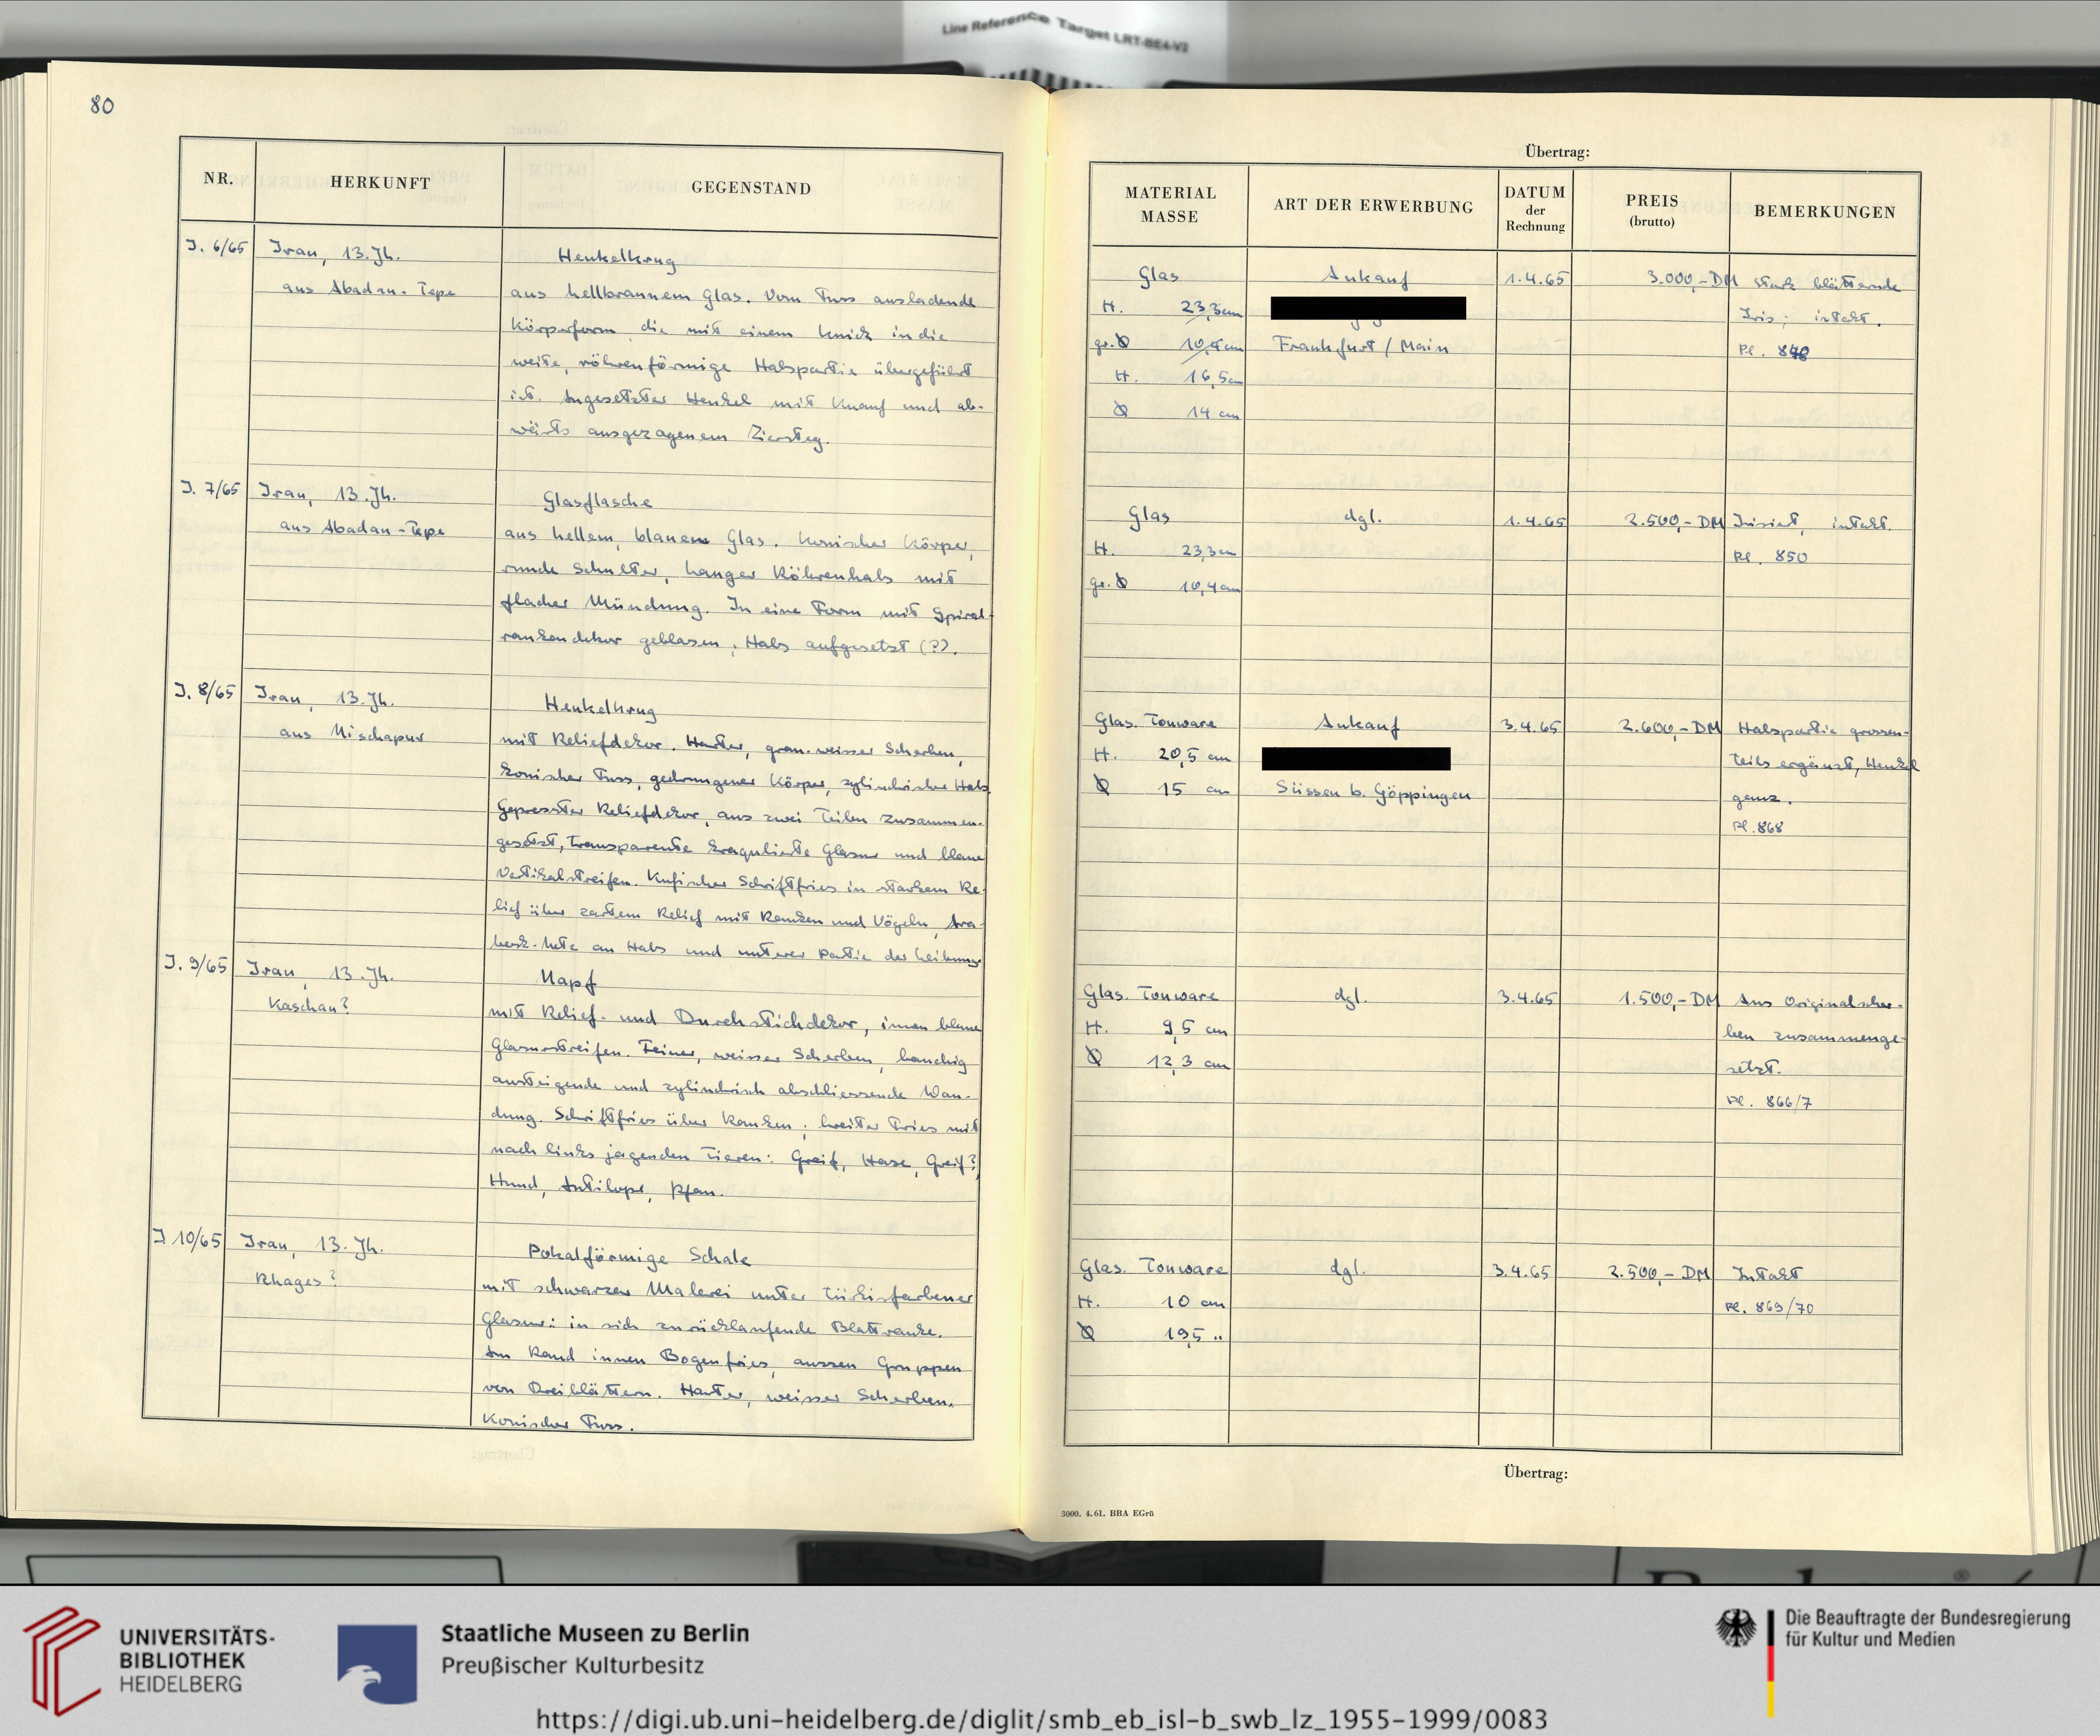 Line Reference Target LRT-BE4-V2
80
NR.
HERKUNFT
GEGENSTAND
J. 6/65
Iran, 13. Jh.
aus Abadan-Tepe
Henkelkrug
aus hellbraunem Glas. Vom Fuss ausladende
Körperform, die mit einem Knick in die
weite, röhrenförmige Halspartie übergeführt
ist. Angesetzter Henkel mit Knauf und ab-
wärts ausgezogenem Ziersteg.
J. 7/65
Iran, 13. Jh.
aus Abadan-Tepe
Glasflasche
aus hellem, blauem Glas. Konischer Körper,
runde Schulter, langer Röhrenhals mit
flacher Mündung. In eine Form mit Spiral-
rankendekor geblasen, Hals aufgesetzt (?).
J. 8/65
Iran, 13. Jh.
aus Nischapur
Henkelkrug
mit Reliefdekor. Harter, grau-weisser Scherben,
konischer Fuss, gedrungener Körper, zylindrischer Hals.
Gepresster Reliefdekor, aus zwei Teilen zusammen-
gesetzt, transparente kraquelierte Glasur und blaue
Vertikalstreifen. Kufischer Schriftfries in starkem Re-
lief über zartem Relief mit Ranken und Vögeln, Ara-
an Hals und unterer Partie der Leibung
J. 9/65
Iran, 13. Jh.
Kaschan?
Napf
mit Relief- und Durchstichdekor, innen blaue
Glasurstreifen. Feiner, weisser Scherben, bauchig
ansteigende und zylindrisch abschliessende Wan-
dung. Schriftfries über Ranken; breiter Fries mit
nach links jagenden Tieren: Greif, Hase, Greif?,
Hund, Antilope, Pfau.
J. 10/65
Iran, 13. Jh.
Rhages?
Pokalförmige Schale
mit schwarzer Malerei unter türkisfarbener
Glasur: in sich zurücklaufende Blattranke.
Am Rand innen Bogenfries, aussen Gruppen
von Dreiblättern. Harter, weisser Scherben.
Konischer Fuss.
Übertrag:
MATERIAL
MASSE
ART DER ERWERBUNG
DATUM
der
Rechnung
PREIS
(brutto)
BEMERKUNGEN
Glas
Ankauf
1.4.65
3.000,- DM
stark blätternde
H. 23,3 cm
Iris; intakt.
gr. Ø 10,4 cm
Frankfurt / Main
Pl.
H. 16,5 cm
Ø 14 cm
Glas
dgl.
1.4.65
2.500,- DM
Irisiert, intakt.
H. 23,3 cm
Pl. 850
gr. Ø 10,4 cm
Glas. Tonware
Ankauf
3.4.65
2.600,- DM
Halspartie grossen-
H. 20,5 cm
teils ergänzt, Henkel
Ø 15 cm
Süssen b. Göppingen
ganz.
Pl. 868
Glas. Tonware
dgl.
3.4.65
1.500,- DM
Aus Originalscher-
H. 9,5 cm
ben zusammenge-
Ø 12,3 cm
setzt.
Pl. 866/7
Glas. Tonware
dgl.
3.4.65
2.500,- DM
Intakt
H. 10 cm
Pl. 869/70
Ø 19,5 "
Übertrag:
3000. 4.61. BBA EGrü
UNIVERSITÄTS-
BIBLIOTHEK
HEIDELBERG
Staatliche Museen zu Berlin
Preußischer Kulturbesitz
Die Beauftragte der Bundesregierung
für Kultur und Medien
https://digi.ub.uni-heidelberg.de/diglit/smb_eb_isl-b_swb_lz_1955-1999/0083